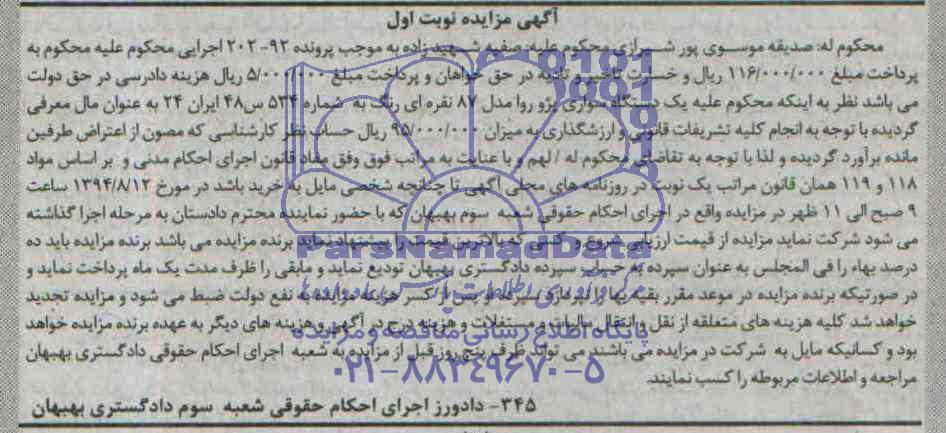 آگهی مزایده نوبت اول
محکوم له: صدیقه موسوی پور شیرازی محکوم علیه: صفیه شهید زاده به موجب پرونده ۹۲-۲۰۲ اجرایی محکوم علیه محکوم به
پرداخت مبلغ ۱۱۶/۰۰۰/۰۰۰ ریال و خسارت تاخیر و تادیه در حق خواهان و پرداخت مبلغ ۵/۰۰۰/۰۰۰ ریال هزینه دادرسی در حق دولت
می باشد نظر به اینکه محکوم علیه یک دستگاه سواری پژو روا مدل ۸۷ نقره ای رنگ به شماره ۵۳۴ س۴۸ ایران ۲۴ به عنوان مال معرفی
گردیده با توجه به انجام کلیه تشریفات قانونی و ارزشگذاری به میزان ۹۵/۰۰۰/۰۰۰ ریال حساب نظر کارشناسی که مصون از اعتراض طرفین
مانده برآورد گردیده و لذا با توجه به تقاضای محکوم له / لهم و با عنایت به مراتب فوق وفق مفاد قانون اجرای احکام مدنی و بر اساس مواد
۱۱۸ و ۱۱۹ همان قانون مراتب یک نوبت در روزنامه های محلی آگهی تا چنانچه شخصی مایل به خرید باشد در مورخ ۱۳۹۴/۸/۱۲ ساعت
۹ صبح الی ۱۱ ظهر در مزایده واقع در اجرای احکام حقوقی شعبه سوم بهبهان که با حضور نماینده محترم دادستان به مرحله اجرا گذاشته
می شود شرکت نماید مزایده از قیمت ارزیابی شروع و کسی که بالاترین قیمت را پیشنهاد نماید برنده مزایده می باشد برنده مزایده باید ده
درصد بهاء را فی المجلس به عنوان سپرده به حساب سپرده دادگستری بهبهان تودیع نماید و مابقی را ظرف مدت یک ماه پرداخت نماید و
در صورتیکه برنده مزایده در موعد مقرر بقیه بها را نپردازد سپرده او پس از کسر هزینه مزایده به نفع دولت ضبط می شود و مزایده تجدید
خواهد شد کلیه هزینه های متعلقه از نقل و انتقال مالیات و مستغلات و هزینه درج در آگهی و هزینه های دیگر به عهده برنده مزایده خواهد
بود و کسانیکه مایل به شرکت در مزایده می باشند می توانند ظرف پنج روز قبل از مزایده به شعبه اجرای احکام حقوقی دادگستری بهبهان
مراجعه و اطلاعات مربوطه را کسب نمایند.
۳۴۵- دادورز اجرای احکام حقوقی شعبه سوم دادگستری بهبهان
ParsNamadData
پایگاه اطلاع رسانی مناقصه و مزایده
۰۲۱-۸۸۳۴۹۶۷۰-۵